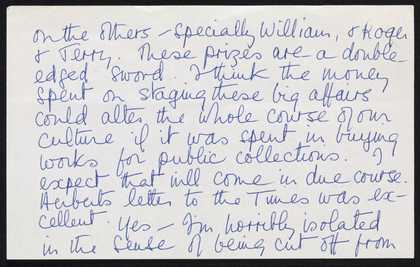 on the others – specially William, & Roger
& Terry. These prizes are a double-
edged sword. I think the money
spent on staging these big affairs
could alter the whole course of our
culture if it was spent in buying
works for public collections. I
expect that will come in due course.
Herberts letter to the Times was ex-
cellent. Yes – I'm horribly isolated
in the sense of being cut off from